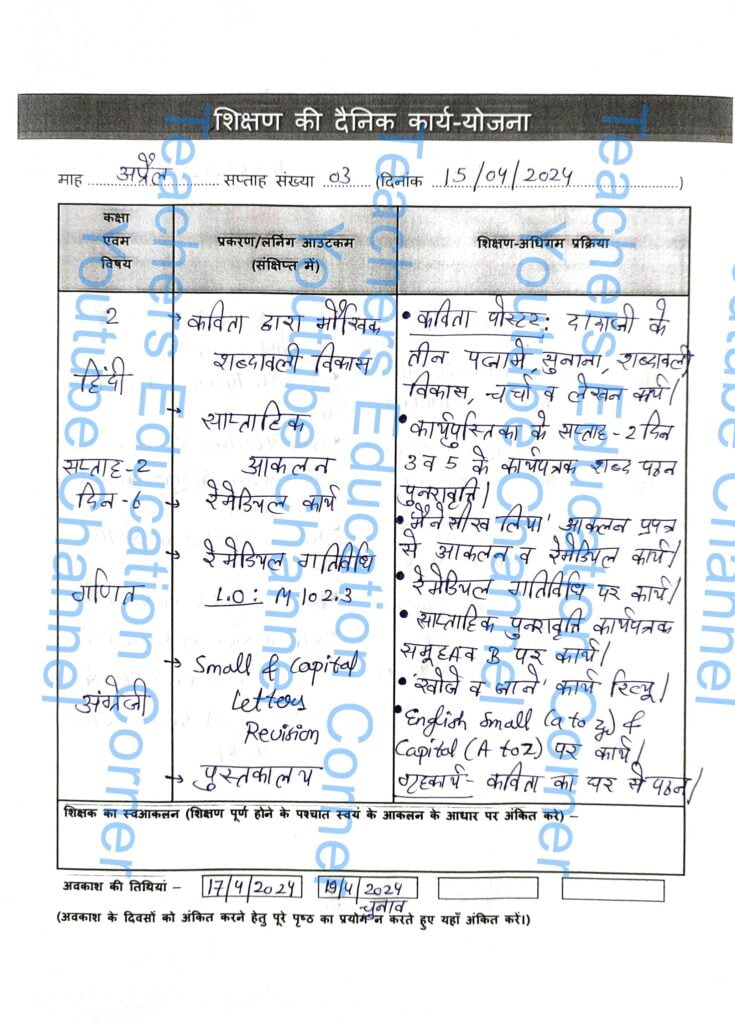 शिक्षण की दैनिक कार्य-योजना
माह अप्रैल सप्ताह संख्या 03 (दिनांक 15/04/2024)
कक्षा एवम विषय
प्रकरण/लर्निंग आउटकम (संक्षिप्त में)
शिक्षण-अधिगम प्रक्रिया
2
हिंदी
सप्ताह-2
दिन-6
गणित
अंग्रेजी
→ कविता द्वारा मौखिक
शब्दावली विकास
→ साप्ताहिक
आकलन
→ रेमेडियल कार्य
→ रेमेडियल गतिविधि
L.O: M 102.3
→ Small & Capital
Letters
Revision
→ पुस्तकालय
• कविता पोस्टर: दादाजी के
तीन पजामे, सुनाना, शब्दावली
विकास, चर्चा व लेखन कार्य।
• कार्यपुस्तिका के सप्ताह-2 दिन
3 व 5 के कार्यपत्रक शब्द पठन
पुनरावृत्ति।
• 'मैंने सीख लिया' आकलन प्रपत्र
से आकलन व रेमेडियल कार्य।
• रेमेडियल गतिविधि पर कार्य।
• साप्ताहिक पुनरावृत्ति कार्यपत्रक
समूह A व B पर कार्य।
• 'खोजें व जाने' कार्य रिव्यू।
• English Small (a to z) &
Capital (A to Z) पर कार्य।
गृहकार्य- कविता का घर से पठन।
शिक्षक का स्वआकलन (शिक्षण पूर्ण होने के पश्चात स्वयं के आकलन के आधार पर अंकित करें) –
अवकाश की तिथियां – 17/4/2024 19/4/2024
चुनाव
(अवकाश के दिवसों को अंकित करने हेतु पूरे पृष्ठ का प्रयोग न करते हुए यहाँ अंकित करें।)
Teachers Education Corner
Youtube Channel
Teachers Education Corner
Youtube Channel
Teachers Education Corner
Youtube Channel